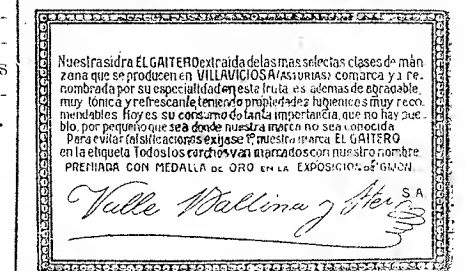 Nuestra sidra EL GAITERO extraida de las mas selectas clases de man
zana que se producen en VILLAVICIOSA (ASTURIAS) comarca ya re.
nombrada por su especialidad en esta fruta, es ademas de agradable,
muy tónica y refrescante, teniendo propiedades higienicas muy reco
mendables Hoy es su consumo de tanta importancia, que no hay pue
blo, por pequeño que sea donde nuestra marca no sea conocida
Para evitar falsificaciones exijase nuestra marca EL GAITERO
en la etiqueta Todos los corchos van marcados con nuestro nombre
PREMIADA CON MEDALLA DE ORO EN LA EXPOSICION DE GIJON.
Valle Ballina y Her
S A